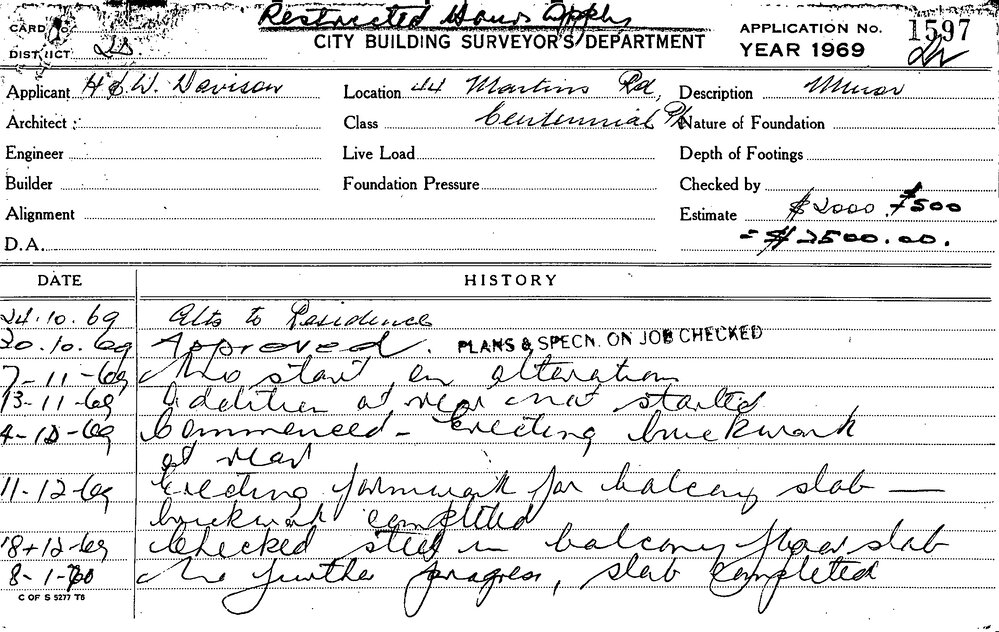 Restricted Hours Apply
CARD No.
CITY BUILDING SURVEYOR'S DEPARTMENT
APPLICATION No. 1597
DISTRICT 2S
YEAR 1969
Applicant H & W. Davison Location 44 Martins Rd, Description Minor
Architect : Class Centennial Pk Nature of Foundation
Engineer Live Load Depth of Footings
Builder Foundation Pressure Checked by
Alignment Estimate $2000. +500
D.A. = $2500.00.
DATE HISTORY
24.10.69 Alts to Residence
20.10.69 Approved. PLANS & SPECN. ON JOB CHECKED
7-11-69 No start on alteration
13-11-69 Addition at rear not started
4-12-69 Commenced - Erecting brickwork
at rear
11-12-69 Erecting formwork for balcony slab —
brickwork completed
18-12-69 Checked steel in balcony floor slab
8-1-70 No further progress, slab completed
C OF S 5277 T6